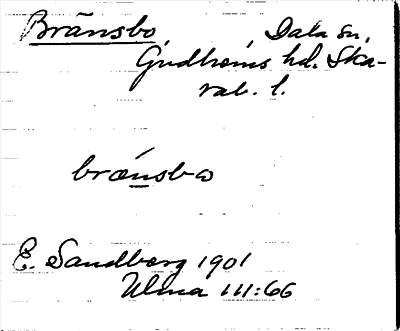 Bränsbo, Dala sn,
Gudhems hd. Ska-
rab. l.
brænsbω
E. Sandberg 1901
Ulma 111:66